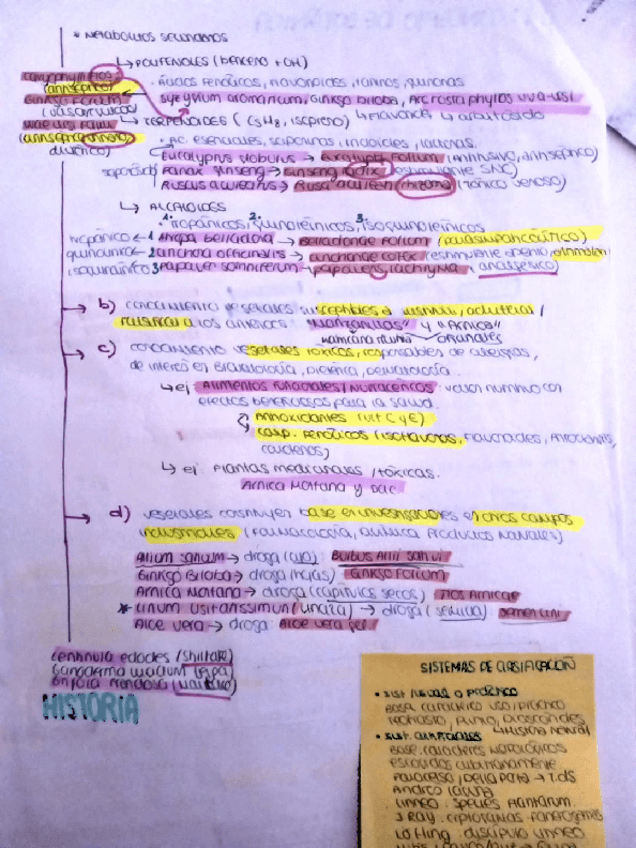 * METABOLITOS SECUNDARIOS
↳ POLIFENOLES (benceno + OH)
· Ácidos fenólicos, flavonoides, taninos, quinonas
Syzygium aromaticum, Ginkgo biloba, Arctostaphylos uva-ursi
caryophylli flos
(antiséptico)
Ginkgo folium
uvae ursi folium
(antiséptico
diurético)
↳ TERPENOIDES (C5H8, isopreno)
· Ac. esenciales, saponinas, iridoides, lactonas.
Eucalyptus globulus → Eucalypti folium (antitusivo, antiséptico)
saponinas Panax ginseng → Ginseng radix (estimulante SNC)
Ruscus aculeatus → Rusci aculeati rhizoma (tónico venoso)
↳ ALCALOIDES
1. tropánicos, 2. quinoleínicos, 3. isoquinoleínicos
tropánico ← 1 Atropa belladona → Belladonae folium (parasimpaticolítico)
2 Cinchona officinalis → Cinchonae cortex
isoquinoleínico 3 Papaver somniferum → papaveris lachryma (analgésico)
→ b) conocimiento de vegetales susceptibles a sustituir, adulterar /
falsificar a los anteriores "Manzanillas" y "Arnica"
→ c) conocimiento vegetales tóxicos, responsables de alergias,
de interés en Bromatología, Dietética, Dermatología.
↳ ej: Alimentos funcionales / Nutracéuticos: valor nutritivo con
efectos beneficiosos para la salud.
Antioxidantes (vit C y E)
comp. fenólicos (isoflavonas, flavonoides, antocianos,
↳ ej: Plantas medicinales / tóxicas.
Arnica Montana y
→ d) vegetales constituyen base en investigaciones en otros campos
industriales (Farmacología, Química Productos Naturales)
Allium sativum → droga (ajo) Bulbus Allii sativi
Ginkgo Biloba → droga (hojas) Ginkgo Folium
Arnica Montana → droga (capítulos secos) Flos Arnicae
* Linum usitatissimun (linaza) → droga (semilla) Semen Lini
Aloe vera → droga: Aloe vera gel
Lentinula edodes (shiitake)
Ganoderma lucidum
Grifola frondosa (maitake)
HISTORIA
SISTEMAS DE CLASIFICACIÓN
• sist. usual o práctico
Base: carácter uso, práctico
Teofrasto, Plinio, Dioscórides
↳ Historia natural
• sist. artificiales
Base: caracteres morfológicos
escogidos arbitrariamente
Paracelso, Della Porta → T. ds
Andrés Laguna
Linneo: Species Plantarum.
J Ray: criptógamas - fanerógamas
Löfling: discípulo Linneo